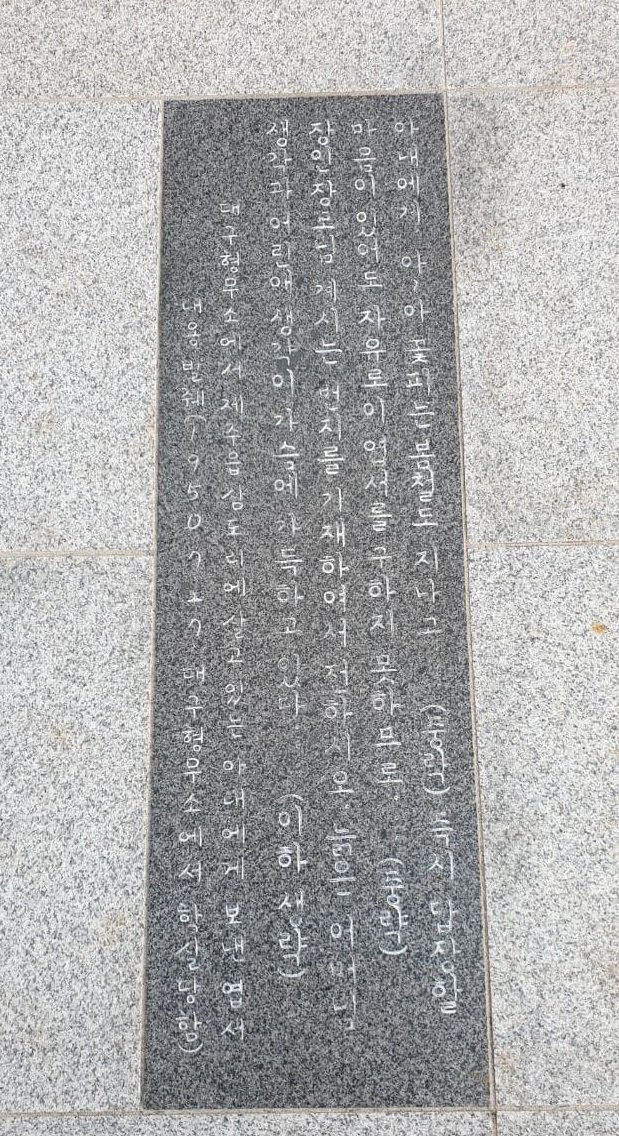 아내에게 아, 아 꽃피는 봄철도 지나고 (중략) 즉시 답장할
마음이 있어도 자유로이 엽서를 구하지 못하므로, (중략)
장인장모님 계시는 번지를 기재하여서 전하시오. 늙은 어머님
생각과 어린애 생각이 가슴에 가득하고 있다. (이하 생략)
대구형무소에서 제주읍 삼도리에 살고 있는 아내에게 보낸 엽서
내용 발췌(1950 7 27. 대구형무소에서 학살당함)